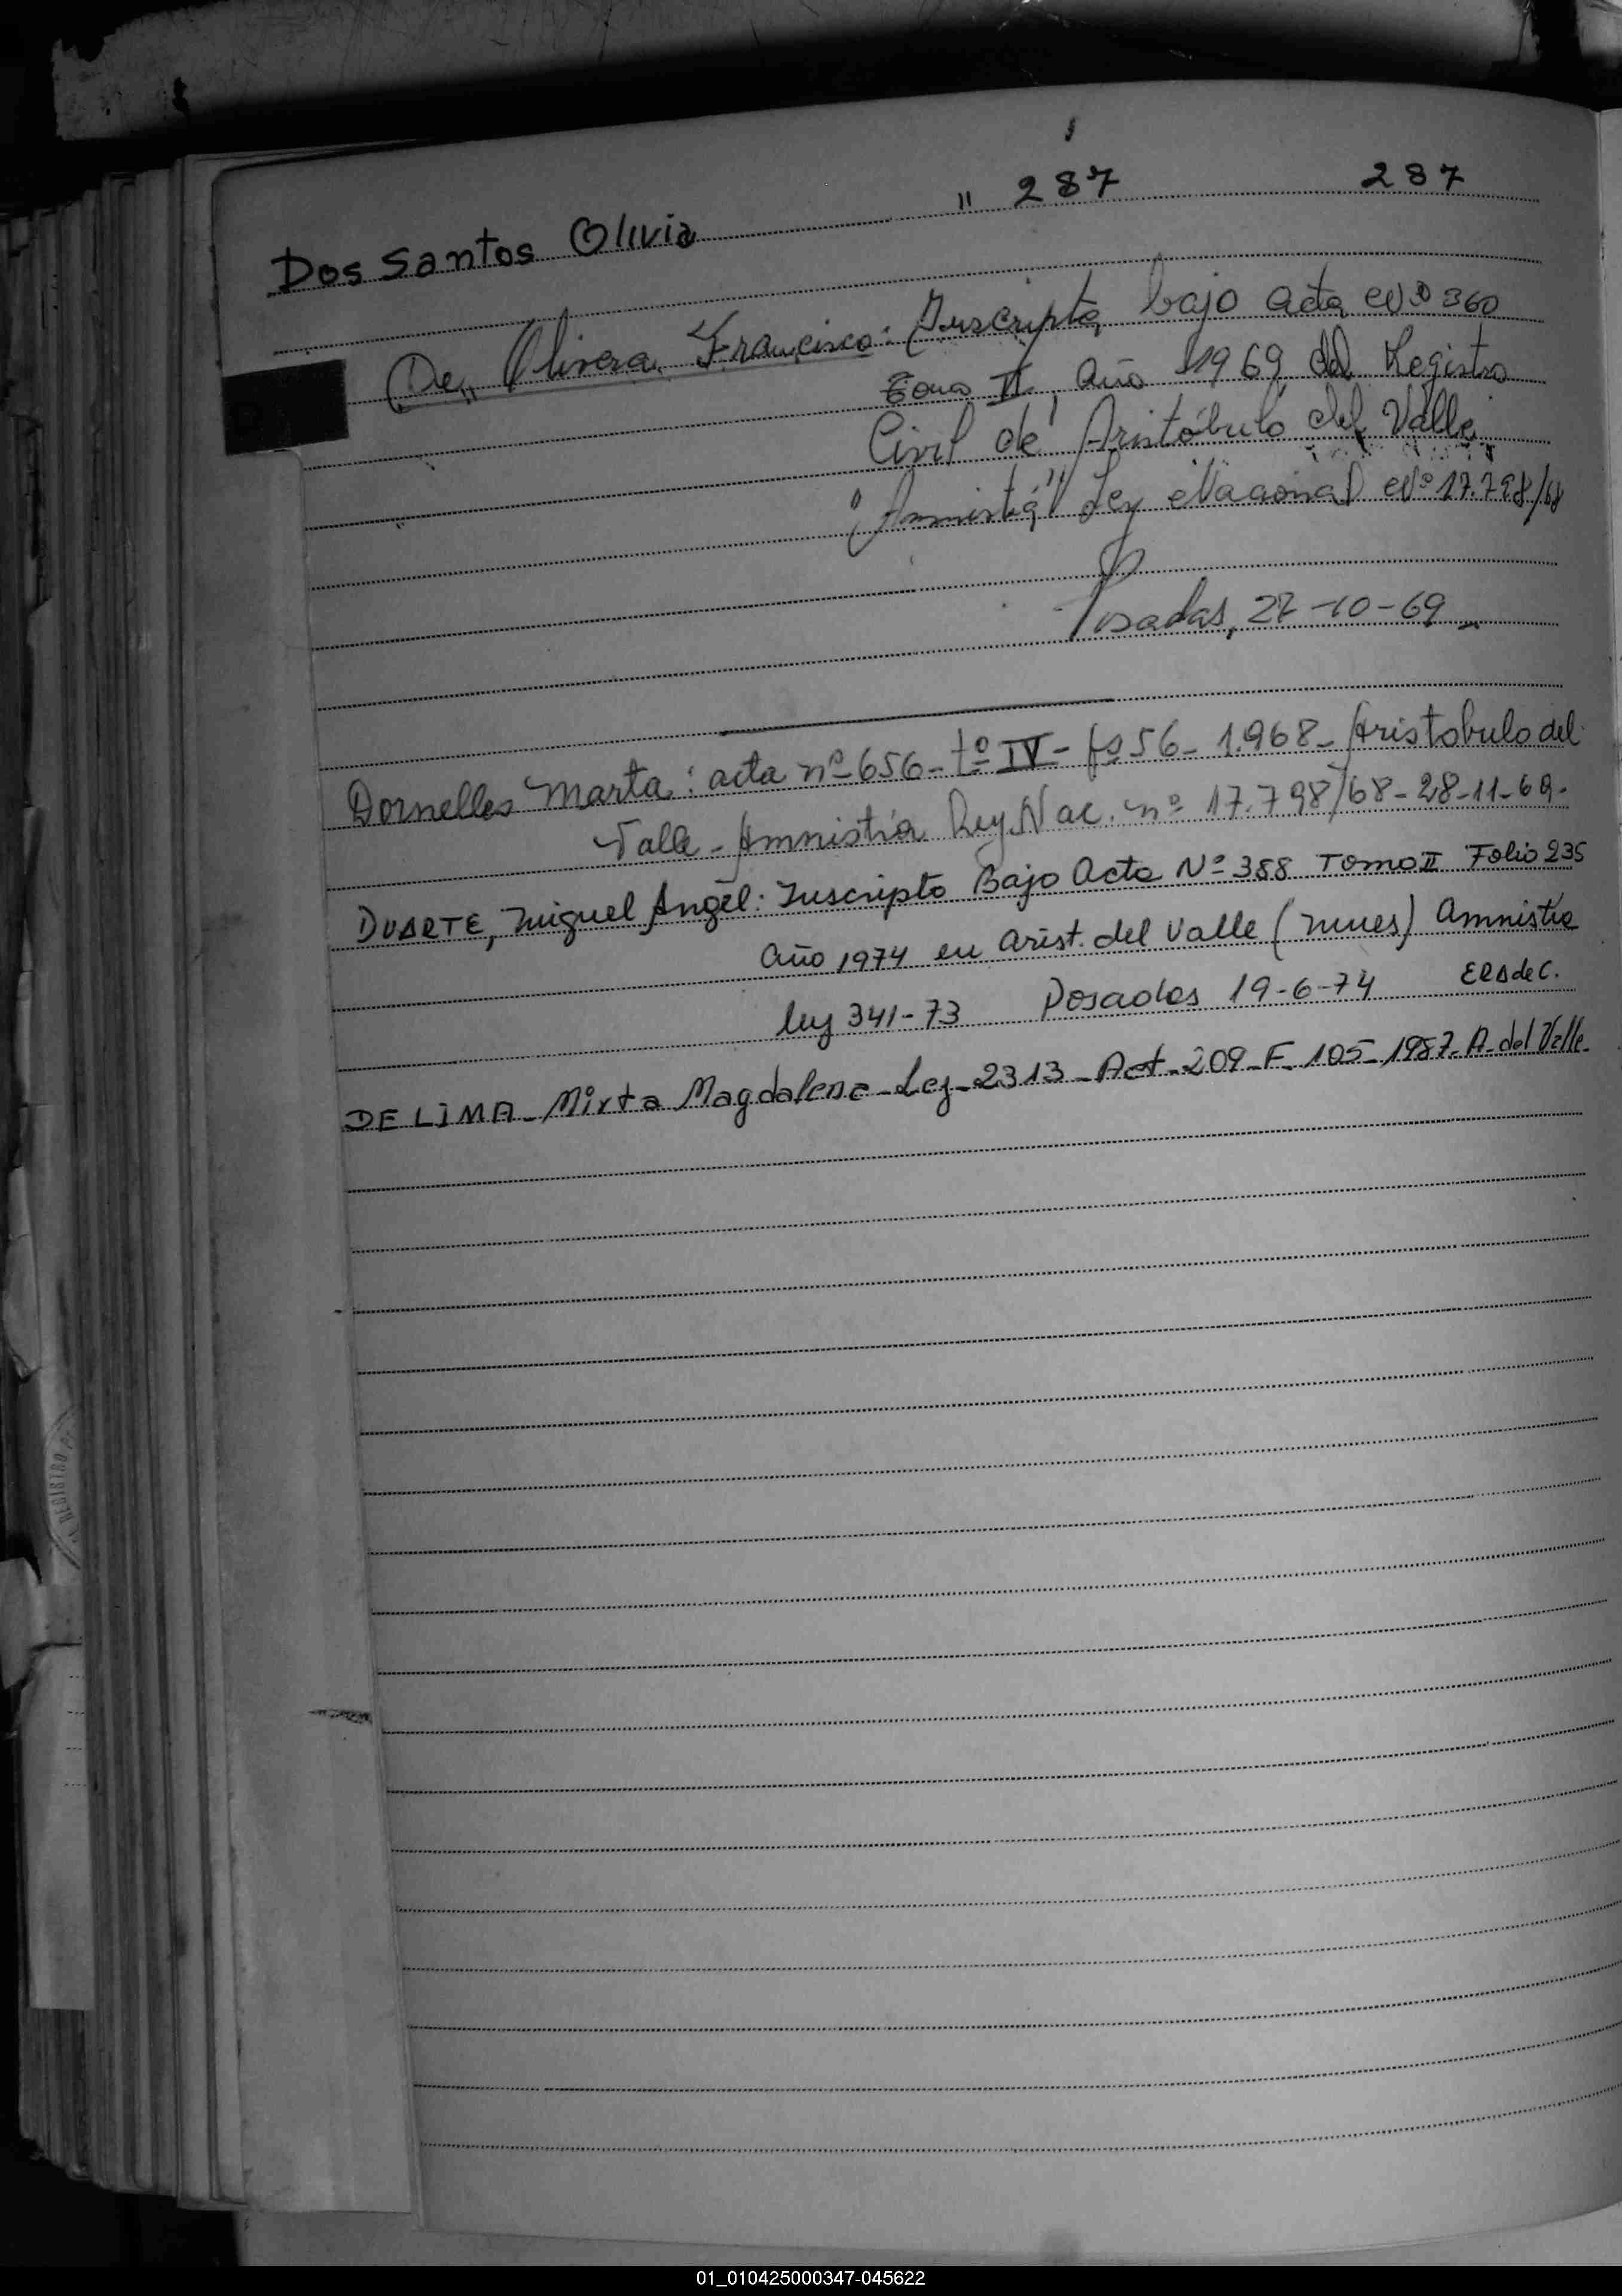 Dos Santos Olivia " 287 287
De Olivera Francisco: Inscripta bajo acta Nº 360
Tomo II, año 1969 del Registro
Civil de Aristóbulo del Valle
"Amnistía" Ley Nacional Nº 17.798/68
Posadas, 27-10-69
Dornelles Marta: acta nº 656- tº IV- fs 56- 1.968- Aristobulo del
Valle- Amnistía Ley Nac. nº 17.798/68-28-11-69-
DUARTE, Miguel Angel: Inscripto Bajo Acta Nº 358 Tomo II Folio 235
año 1974 en Arist. del Valle (Mnes) Amnistia
ley 341-73 Posadas 19-6-74
DE LIMA- Mirta Magdalena- Ley- 2313- Act- 209- F- 105- 1987- A- del Valle-
REGISTRO
01_010425000347-045622